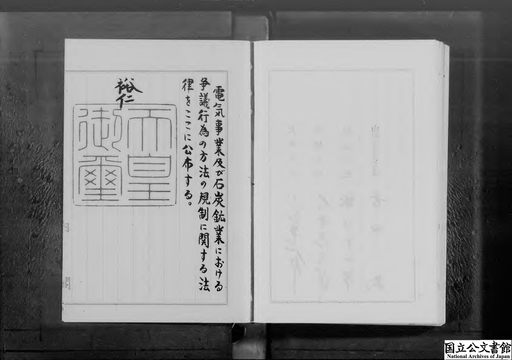 電気事業及び石炭鉱業における
争議行為の方法の規制に関する法
律をここに公布する。
裕仁
天皇
御璽
国立公文書館
National Archives of Japan